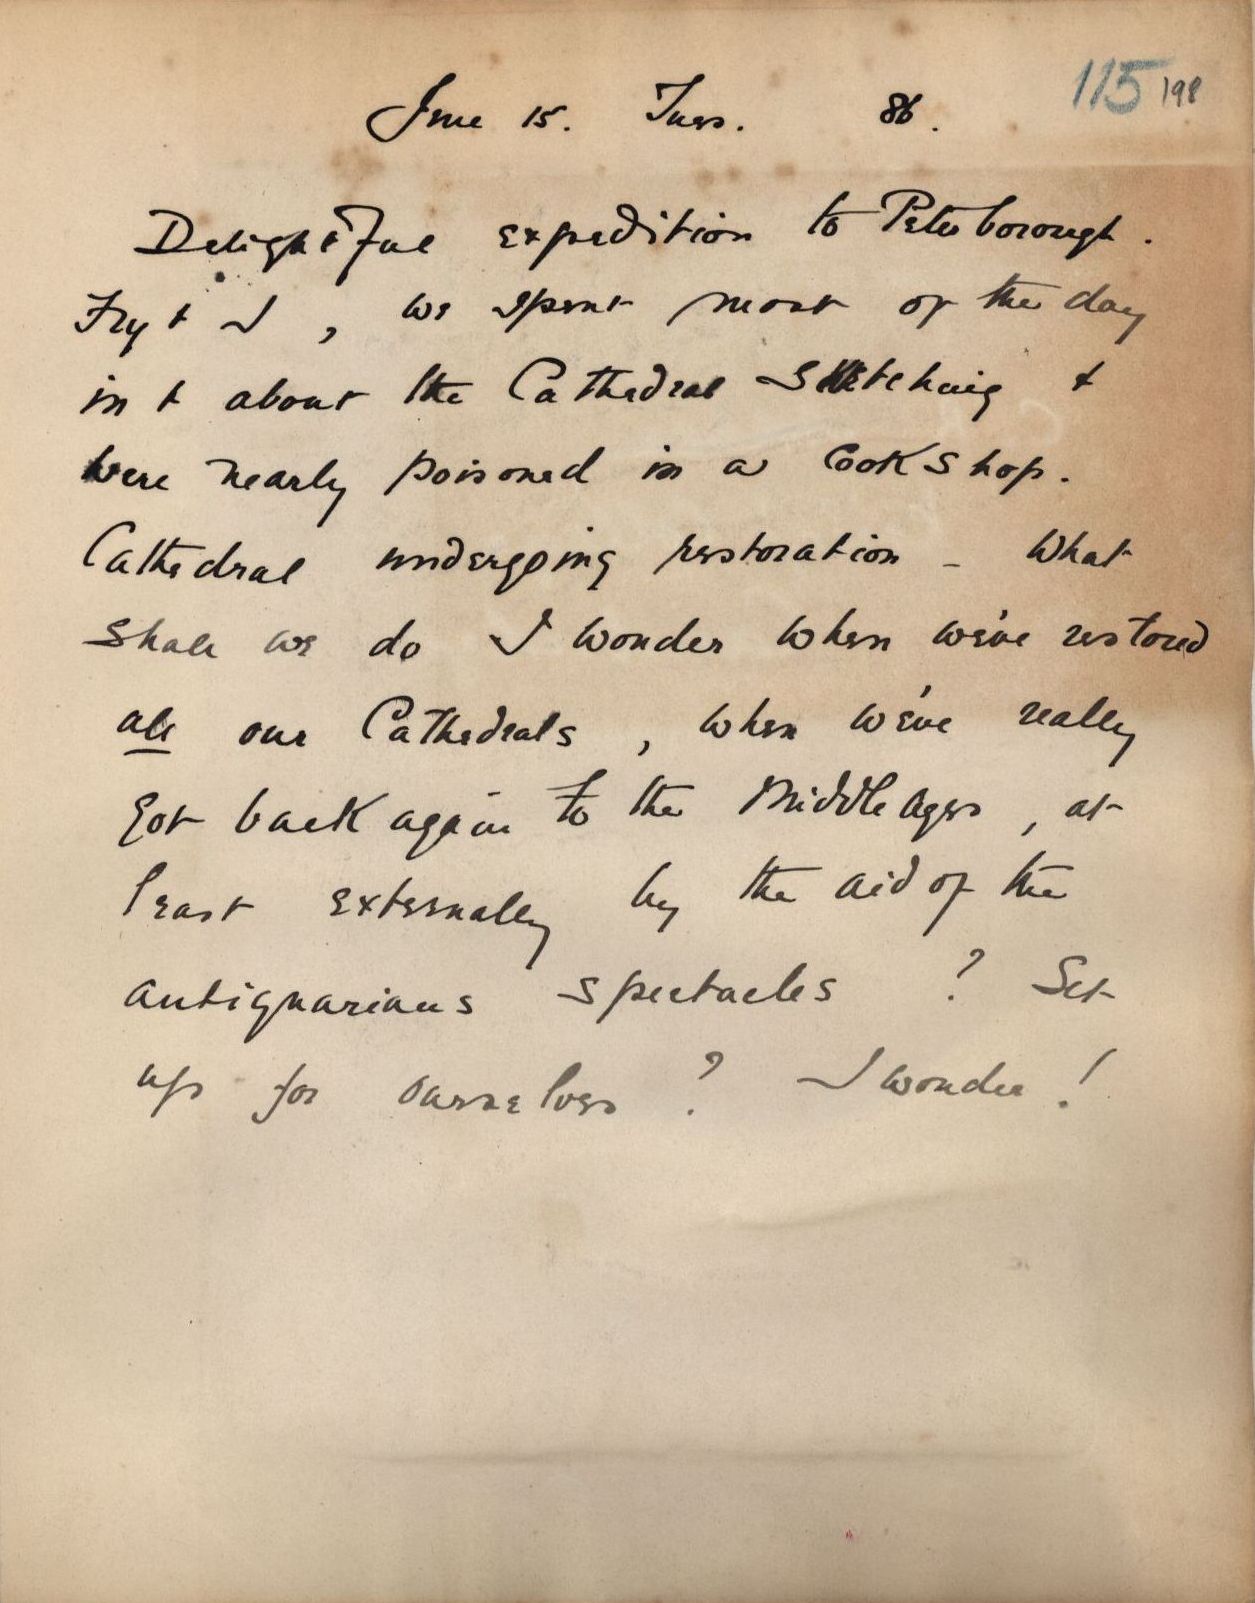 115 198
June 15. Tues. 86.
Delightful expedition to Peterborough.
Fry & I, we spent most of the day
in & about the Cathedral sketching &
were nearly poisoned in a Cook shop.
Cathedral undergoing restoration - What
shall we do I wonder when we've restored
all our Cathedrals, when we've really
got back again to the Middle Ages, at
least externally by the aid of the
antiquarians spectacles? Set
up for ourselves? I wonder!